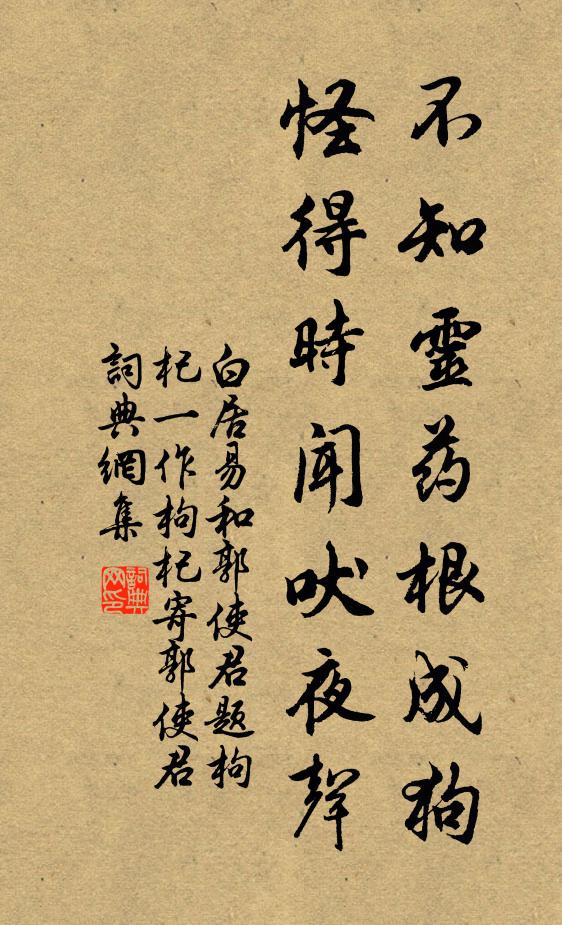 不知靈药根成狗
怪得時闻吠夜聲
白居易和郭使君题枸
杞一作枸杞寄郭使君
詞典網集
詞典
网印